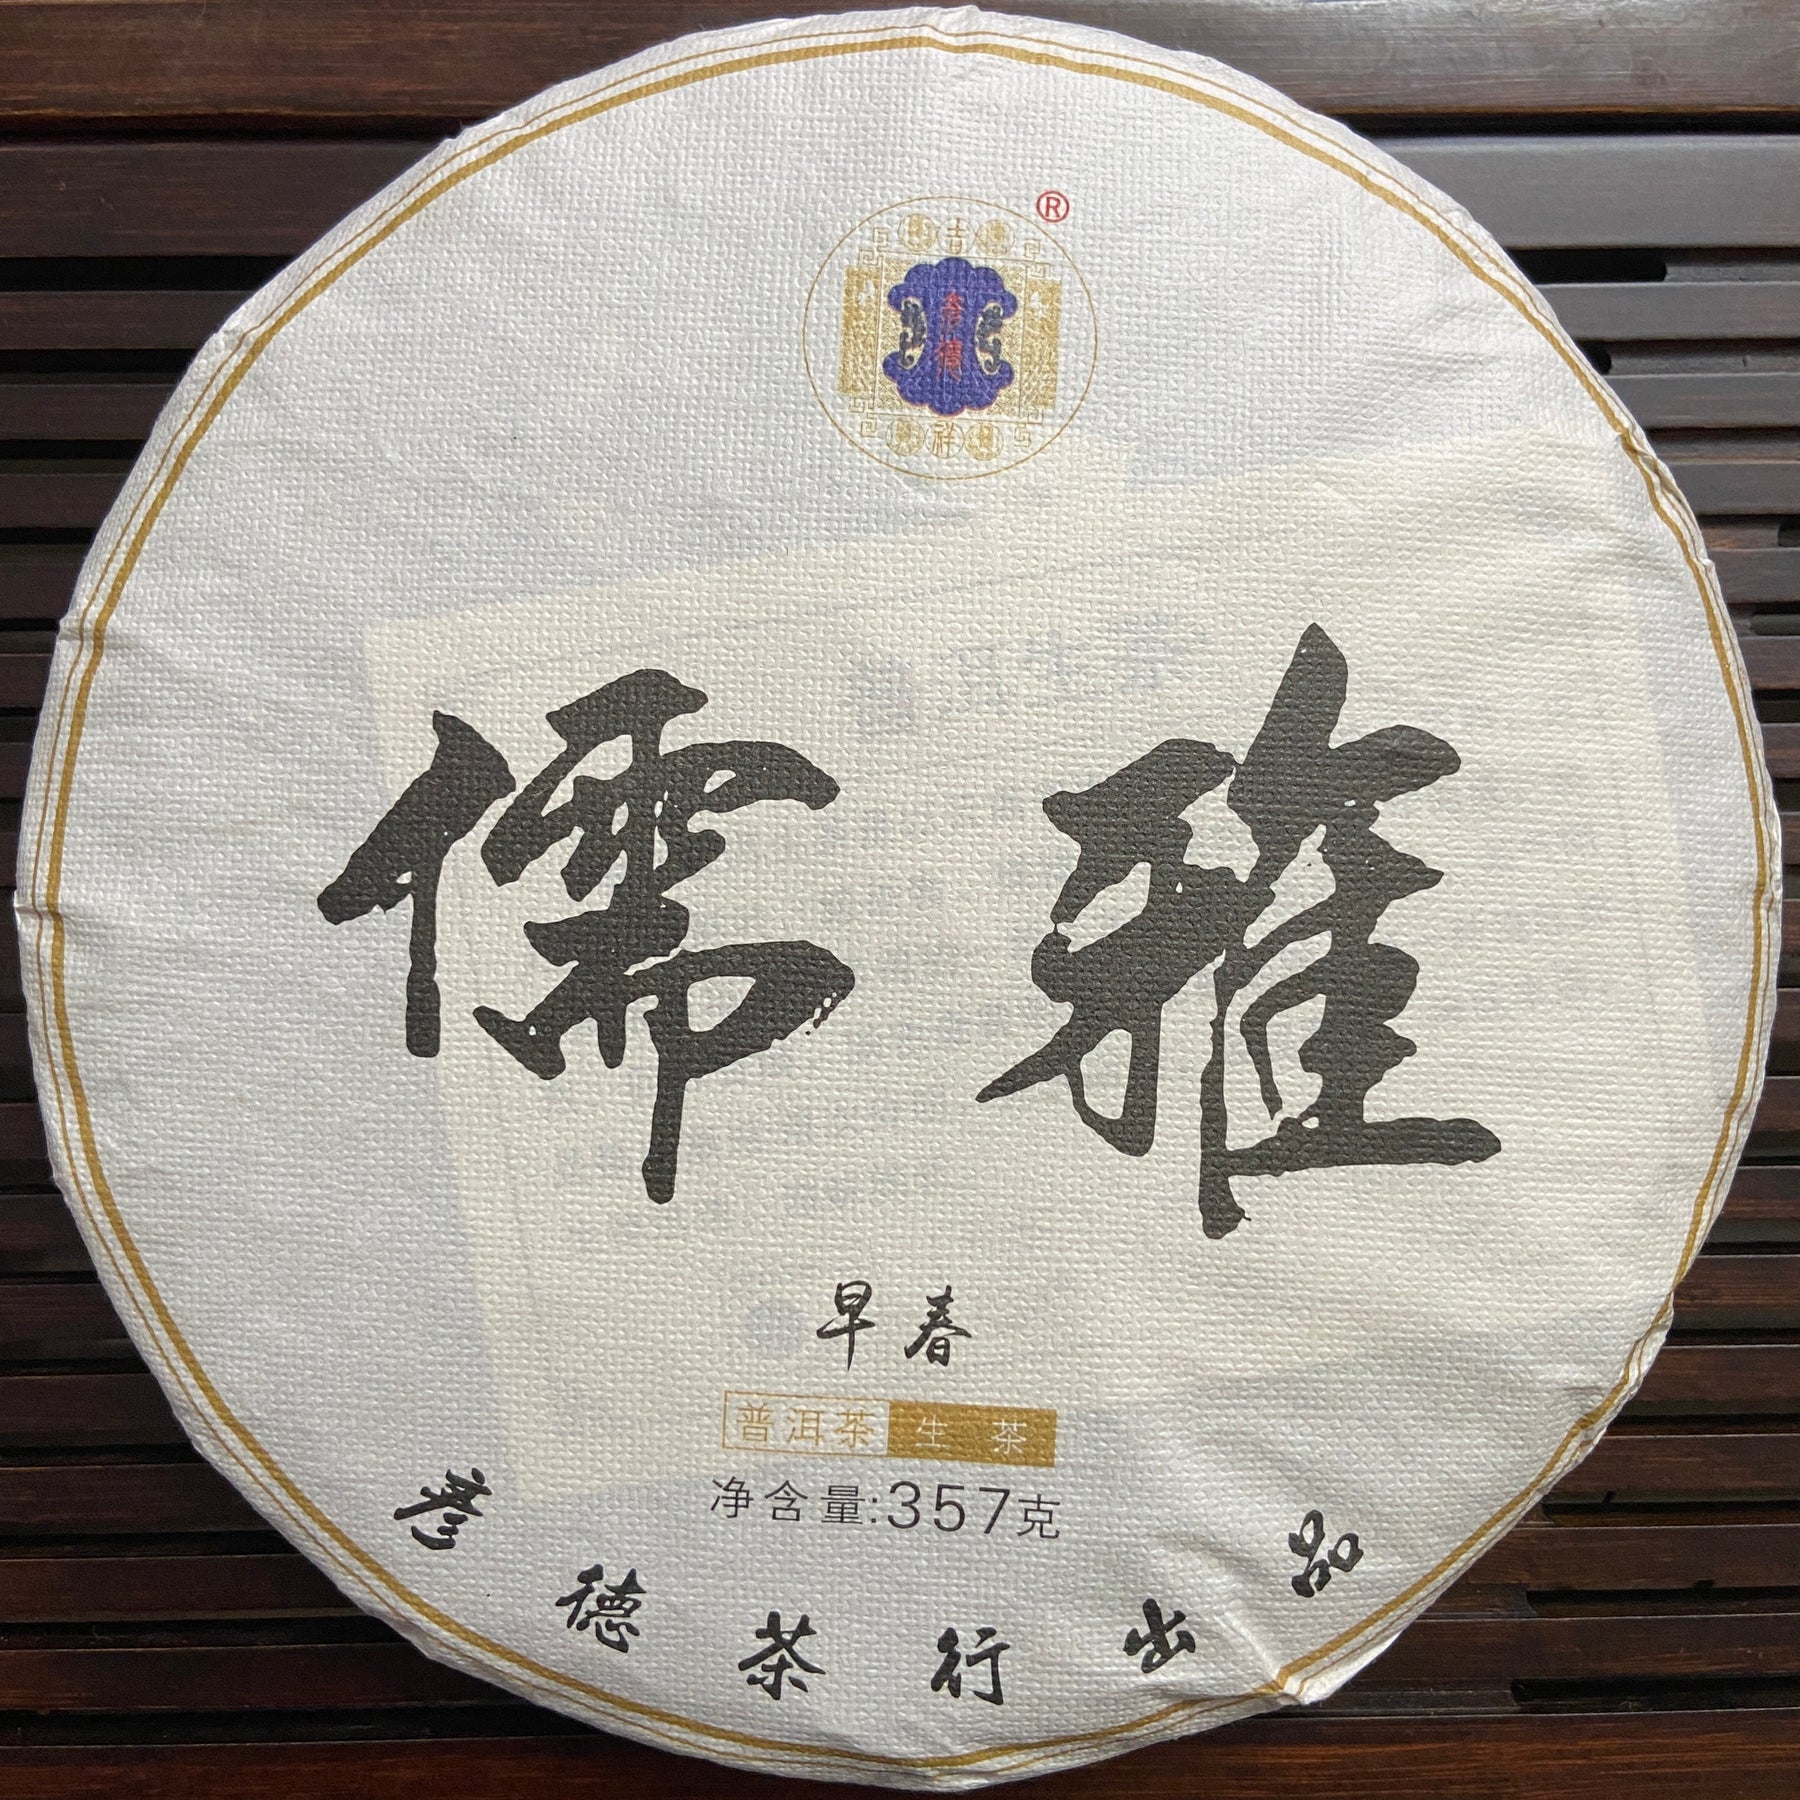 ®
吉
彥德
祥
儒雅
早春
普洱茶 生茶
净含量:357克
彥德茶行出品